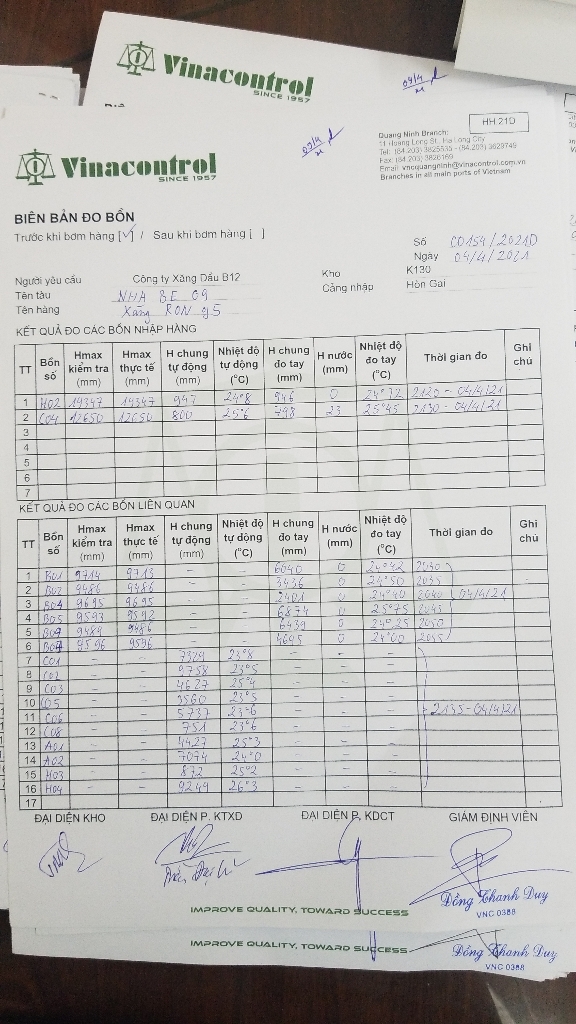 Vinacontrol
SINCE 1957
04/4
HH 21D
Vinacontrol
SINCE 1957
Quang Ninh Branch:
11 Hoang Long St., Ha Long City
Tel: (84.203) 3825535 - (84.203) 3829749
Fax: (84.203) 3826169
Email: vncquangninh@vinacontrol.com.vn
Branches in all main ports of Vietnam
BIÊN BẢN ĐO BỒN
Trước khi bơm hàng [√] / Sau khi bơm hàng [ ]
Số CO154/2021D
Ngày 04/4/2021
Người yêu cầu Công ty Xăng Dầu B12 Kho K130
Tên tàu NHA BE 09 Cảng nhập Hòn Gai
Tên hàng Xăng RON 95
KẾT QUẢ ĐO CÁC BỒN NHẬP HÀNG
TT Bồn số Hmax kiểm tra (mm) Hmax thực tế (mm) H chung tự động (mm) Nhiệt độ tự động (°C) H chung đo tay (mm) H nước (mm) Nhiệt độ đo tay (°C) Thời gian đo Ghi chú
1 H02 19347 19347 947 24°8 946 0 24°32 2120 - 04/4/21
2 C04 12650 12650 800 25°6 798 23 25°45 2130 - 04/4/21
3
4
5
6
7
KẾT QUẢ ĐO CÁC BỒN LIÊN QUAN
TT Bồn số Hmax kiểm tra (mm) Hmax thực tế (mm) H chung tự động (mm) Nhiệt độ tự động (°C) H chung đo tay (mm) H nước (mm) Nhiệt độ đo tay (°C) Thời gian đo Ghi chú
1 B01 9714 9713 - - 6040 0 24°42 2030
2 B02 9486 9486 - - 3436 0 24°50 2035
3 B04 9695 9695 - - 2401 0 24°40 2040 04/4/21
4 B05 9593 9592 - - 6874 0 25°75 2045
5 9489 9486 - - 6439 0 24°25 2050
6 9596 9596 - - 4695 0 24°00 2055
7 C01 - - 7329 23°8 - - -
8 C02 - - 9758 23°5 - - -
9 C03 - - 4627 25°4 - - -
10 C05 - - 3560 23°5 - - -
11 C06 - - 5737 23°6 - - - 2135 - 04/4/21
12 C08 - - 751 23°6 - - -
13 A01 - - 4427 25°3 - - -
14 A02 - - 7074 24°0 - - -
15 H03 - - 872 25°2 - - -
16 H04 - - 9249 26°3 - - -
17
ĐẠI DIỆN KHO ĐẠI DIỆN P. KTXD ĐẠI DIỆN P. KDCT GIÁM ĐỊNH VIÊN
Đồng Thanh Duy
VNC 0388
IMPROVE QUALITY, TOWARD SUCCESS
IMPROVE QUALITY, TOWARD SUCCESS
Đồng Thanh Duy
VNC 0388